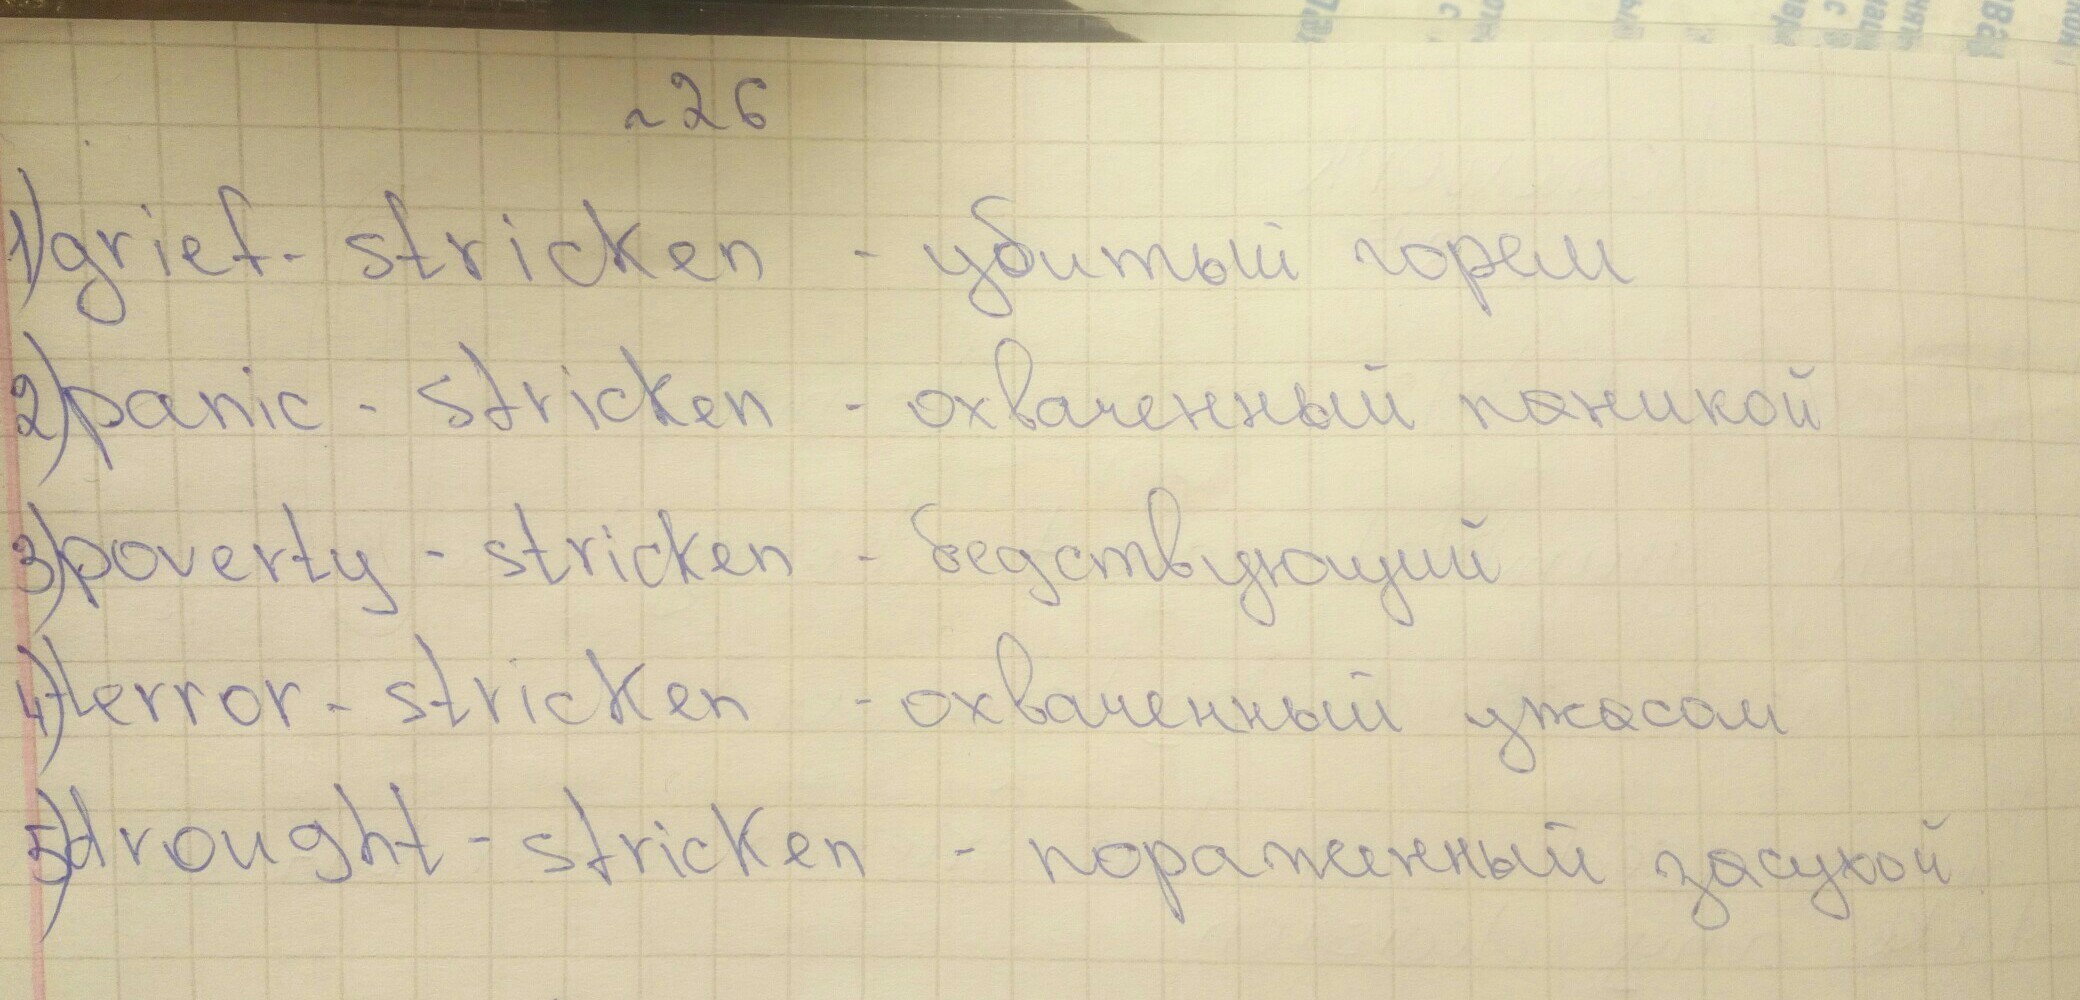 ~26
1) grief-stricken - убитый горем
2) panic-stricken - охваченный паникой
3) poverty-stricken - бедствующий
4) terror-stricken - охваченный ужасом
5) drought-stricken - пораженный засухой